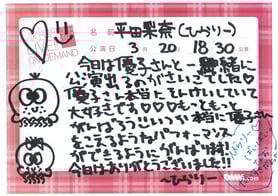 LIVE!!
ON DEMAND
平田梨奈(ひらりー)
公演日 3 20 18:30
今日は優子さんと一緒に
公演出るのがさいごでした♡
優子さん本当にそんけいしていて
大好きです♡♡♡もっともっと
がんばろういつか本当に優子さん
をこえるようなパフォーマンス
をできるようにがんばります!!
今日はありがとうございました!!
〜ひらりー
DMM.com